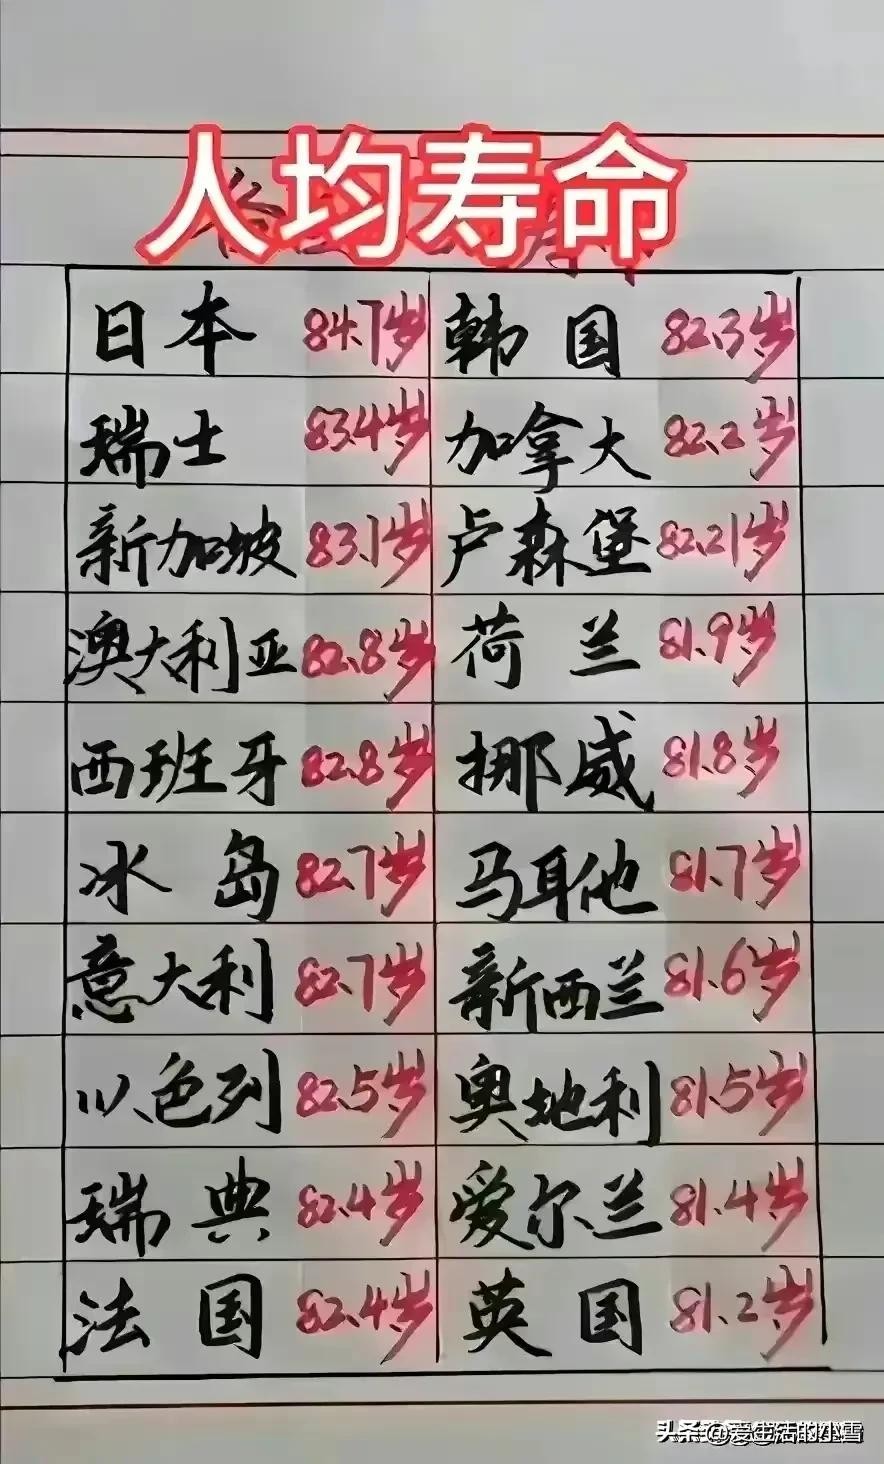 人均寿命
日本 84.7岁 韩国 82.3岁
瑞士 83.4岁 加拿大 82.2岁
新加坡 83.1岁 卢森堡 82.21岁
澳大利亚 82.8岁 荷兰 81.9岁
西班牙 82.8岁 挪威 81.8岁
冰岛 82.7岁 马耳他 81.7岁
意大利 82.7岁 新西兰 81.6岁
以色列 82.5岁 奥地利 81.5岁
瑞典 82.4岁 爱尔兰 81.4岁
法国 82.4岁 英国 81.2岁
头条 @爱生活的小雪